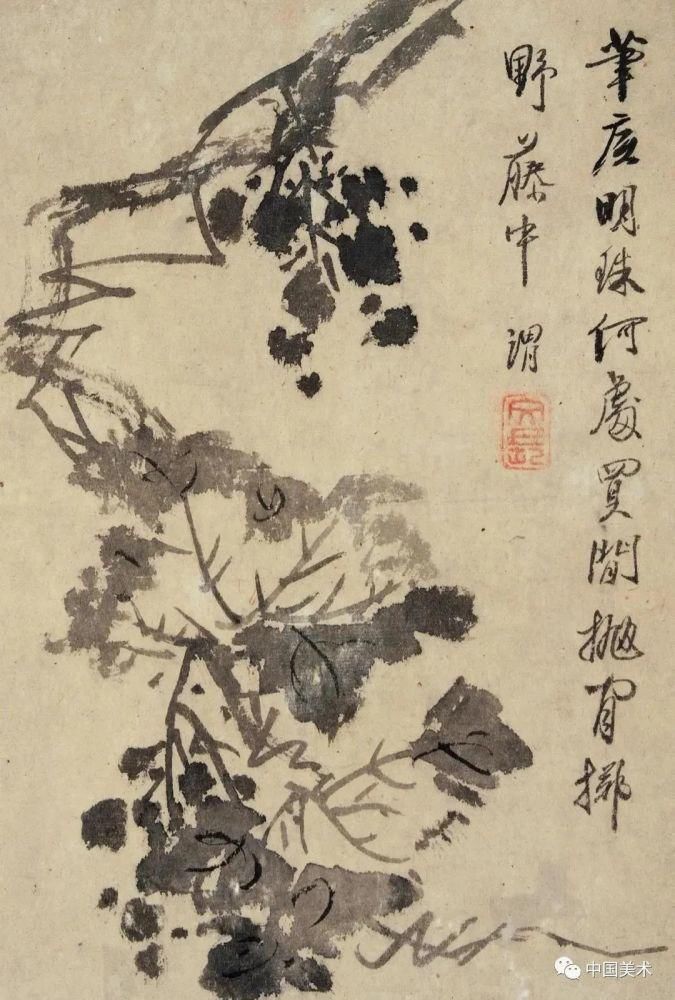 筆底明珠何處買閒拋閒擲
野藤中 渭
文長
中国美术